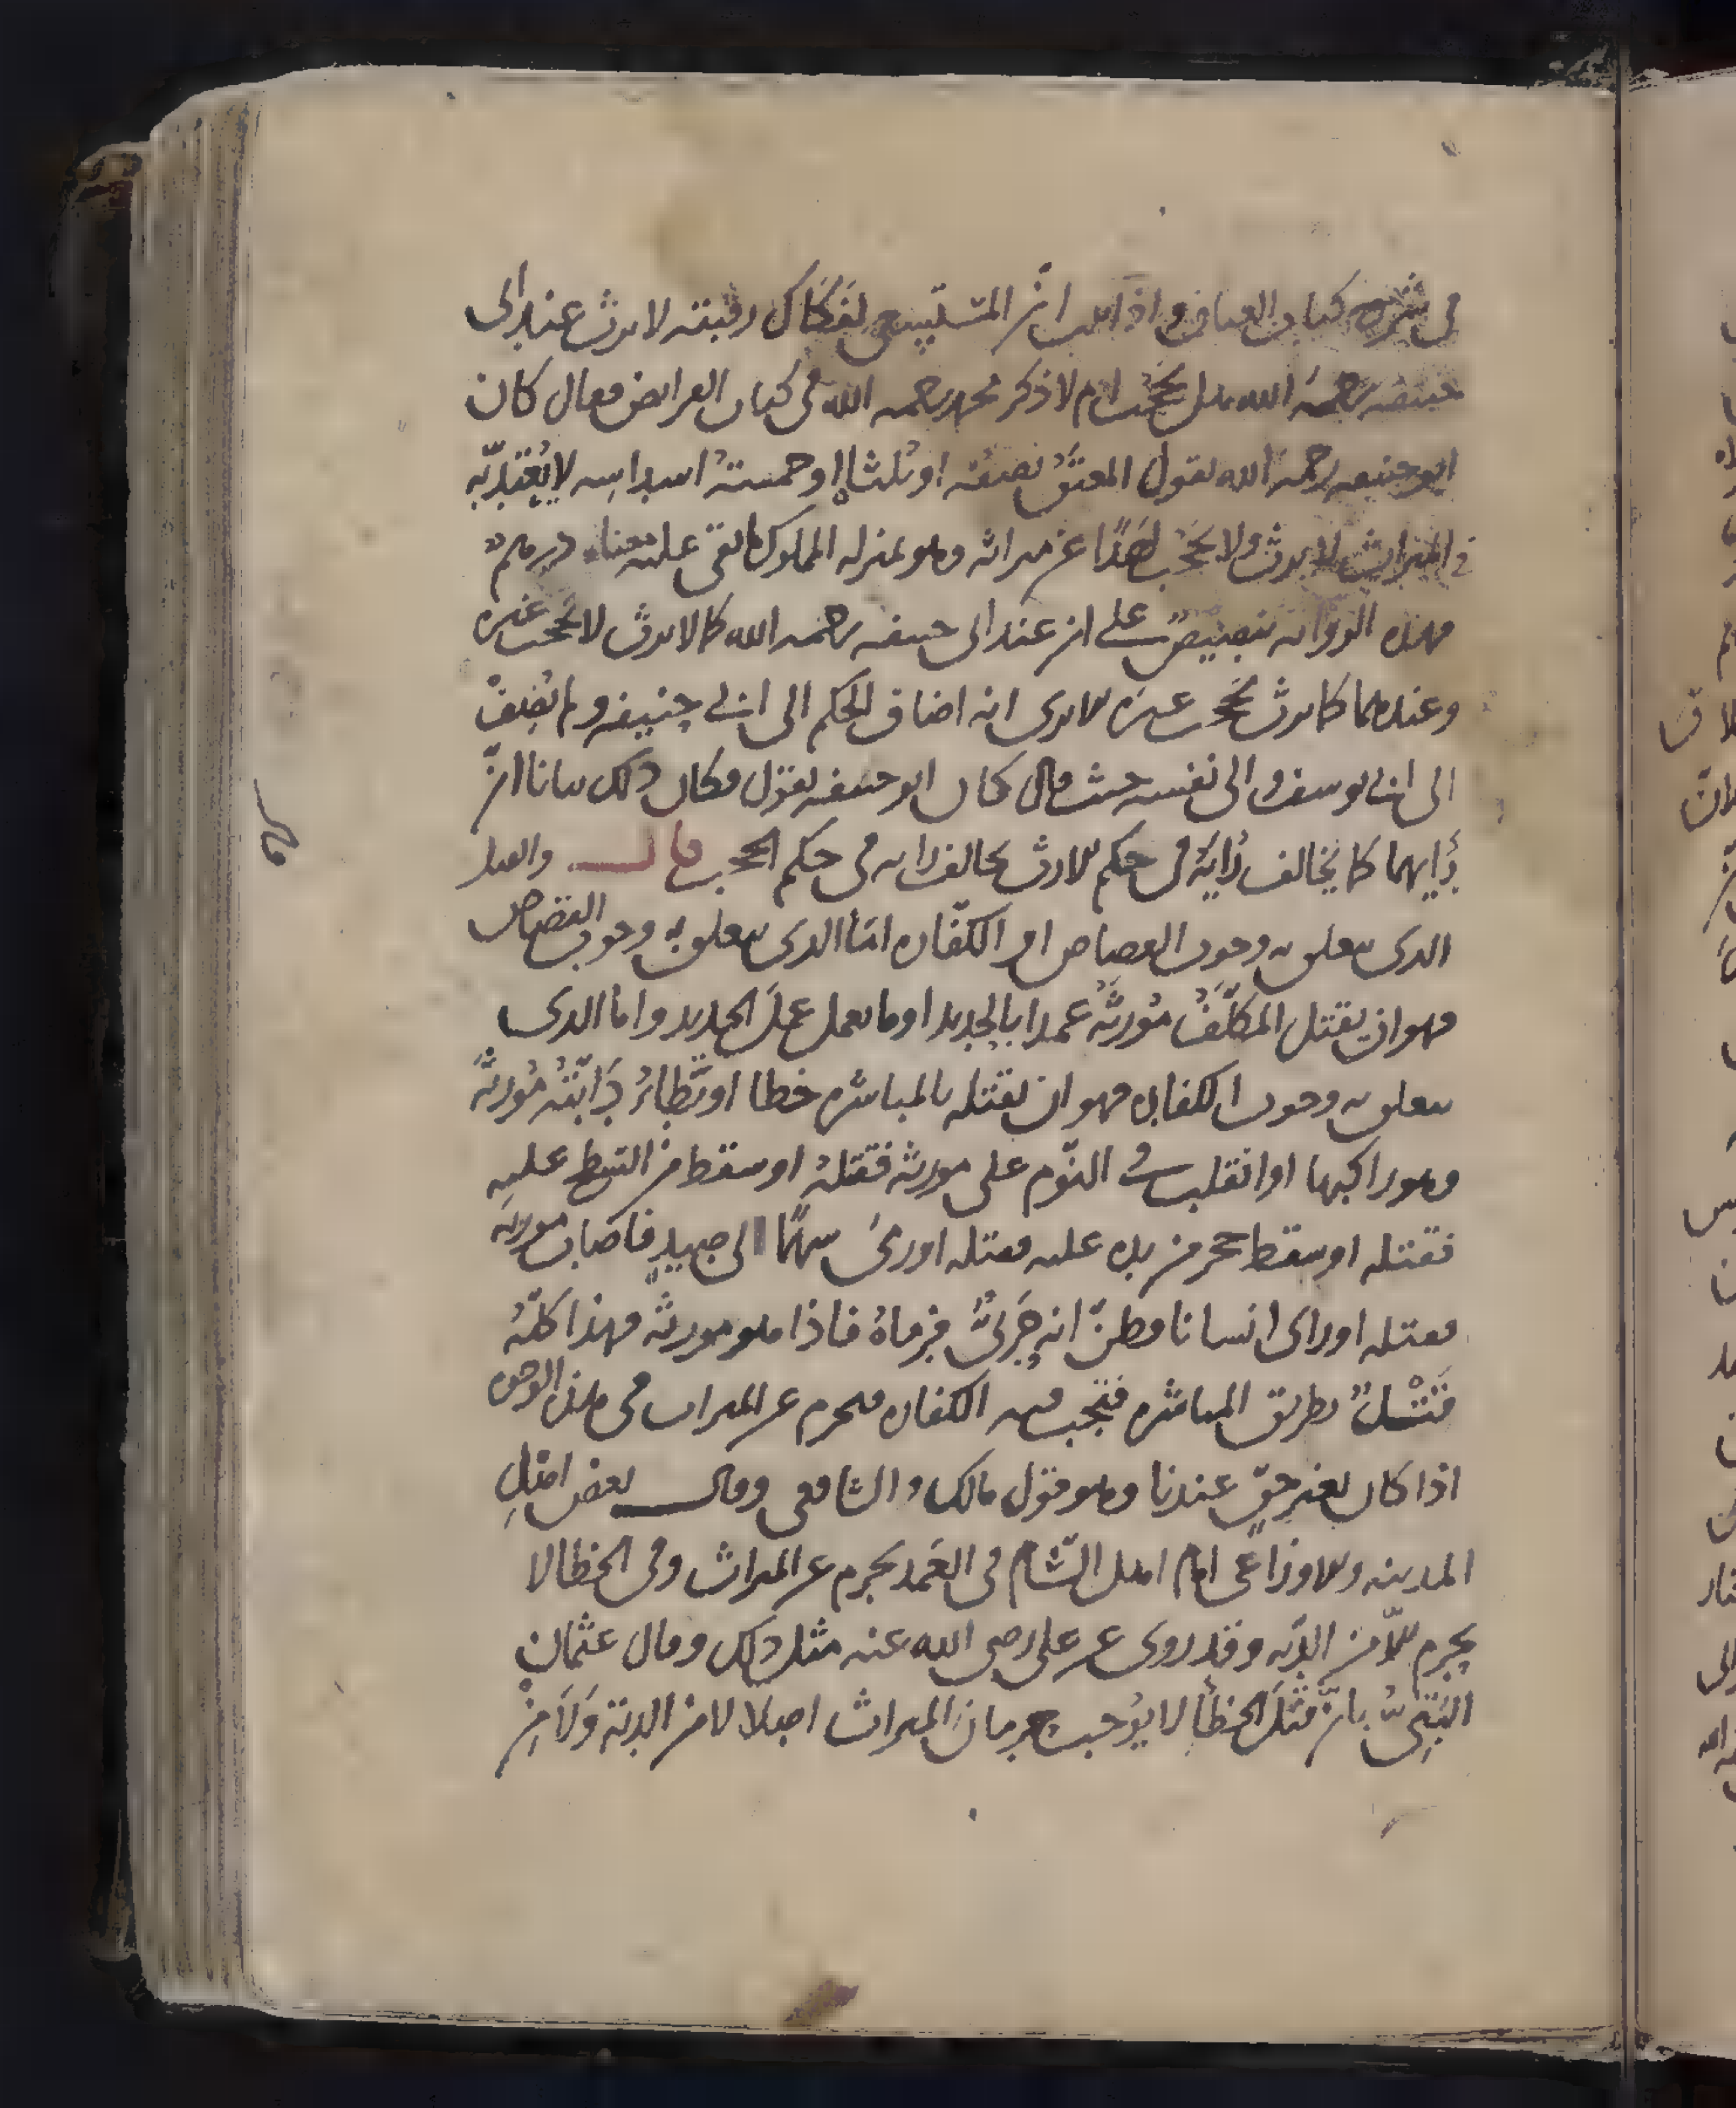 في شرح كتاب العتاق واذا ثبت ان المستسعى لفكاك رقبته لا يرث عند ابي
حنيفة رحمه الله هل يحجب ام لا ذكر محمد رحمه الله في كتاب الفرائض فقال كان
ابو حنيفه رحمه الله يقول المعتق نصفه او ثلثاه او خمسة اسداسه لا يعتد به
في الميراث لا يرث ولا يحجب احدا عن ميراثه وهو بمنزله المملوك ما بقي عليه درهم
فهذه الرواية تنصيص على ان عند ابي حنيفه رحمه الله كما لا يرث لا يحجب غيره
وعندهما كما يرث يحجب غيره الا يرى انه اضاف الحكم الى ابي حنيفه ولم يضف
الى ابي يوسف والى نفسه حيث قال كان ابو حنيفه يقول فكان ذلك بيانا ان
رأيهما كما يخالف رايه في حكم الارث يخالف رايه في حكم الحجب قال والقتل
الذي يتعلق به وجوب القصاص او الكفاره اما الذي يتعلق به وجوب القصاص
فهو ان يقتل المكلف مورثه عمدا بالحديد او ما يعمل عمل الحديد واما الذي
يتعلق به وجوب الكفاره فهو ان يقتله بالمباشره خطا او تطأ دابته مورثه
وهو راكبها او انقلب في النوم على مورثه فقتله او سقط من السطح عليه
فقتله او سقط حجر من يده عليه فقتله او رمى سهما الى صيد فاصاب مورثه
فقتله او راى انسانا فظن انه حربي فرماه فاذا هو مورثه فهذا كله
قتل بطريق المباشره فتجب فيه الكفاره فيحرم عن الميراث في هذه الوجوه
اذا كان بغير حق عندنا وهو قول مالك والشافعي وقال بعض اهل
المدينه والاوزاعي امام اهل الشام في العمد يحرم عن الميراث وفي الخطا لا
يحرم الا من الديه وقد روي عن علي رضي الله عنه مثل ذلك وقال عثمان
البتي بان قتل الخطأ لا يوجب حرمان الميراث اصلا لا من الدية ولا من
قال